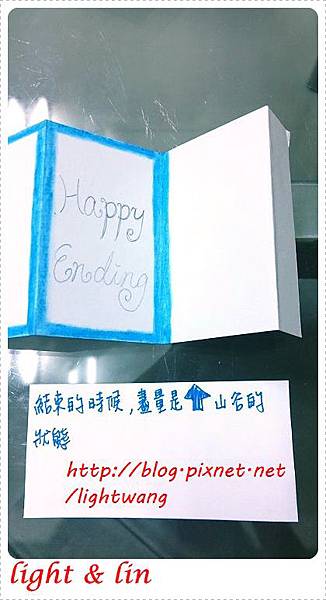 Happy
Ending
結束的時候,盡量是⬆山谷的
狀態
http://blog.pixnet.net
/lightwang
light & lin